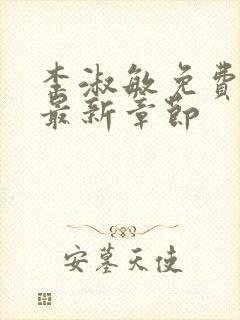 李淑敏免费
最新章节
安墓天使